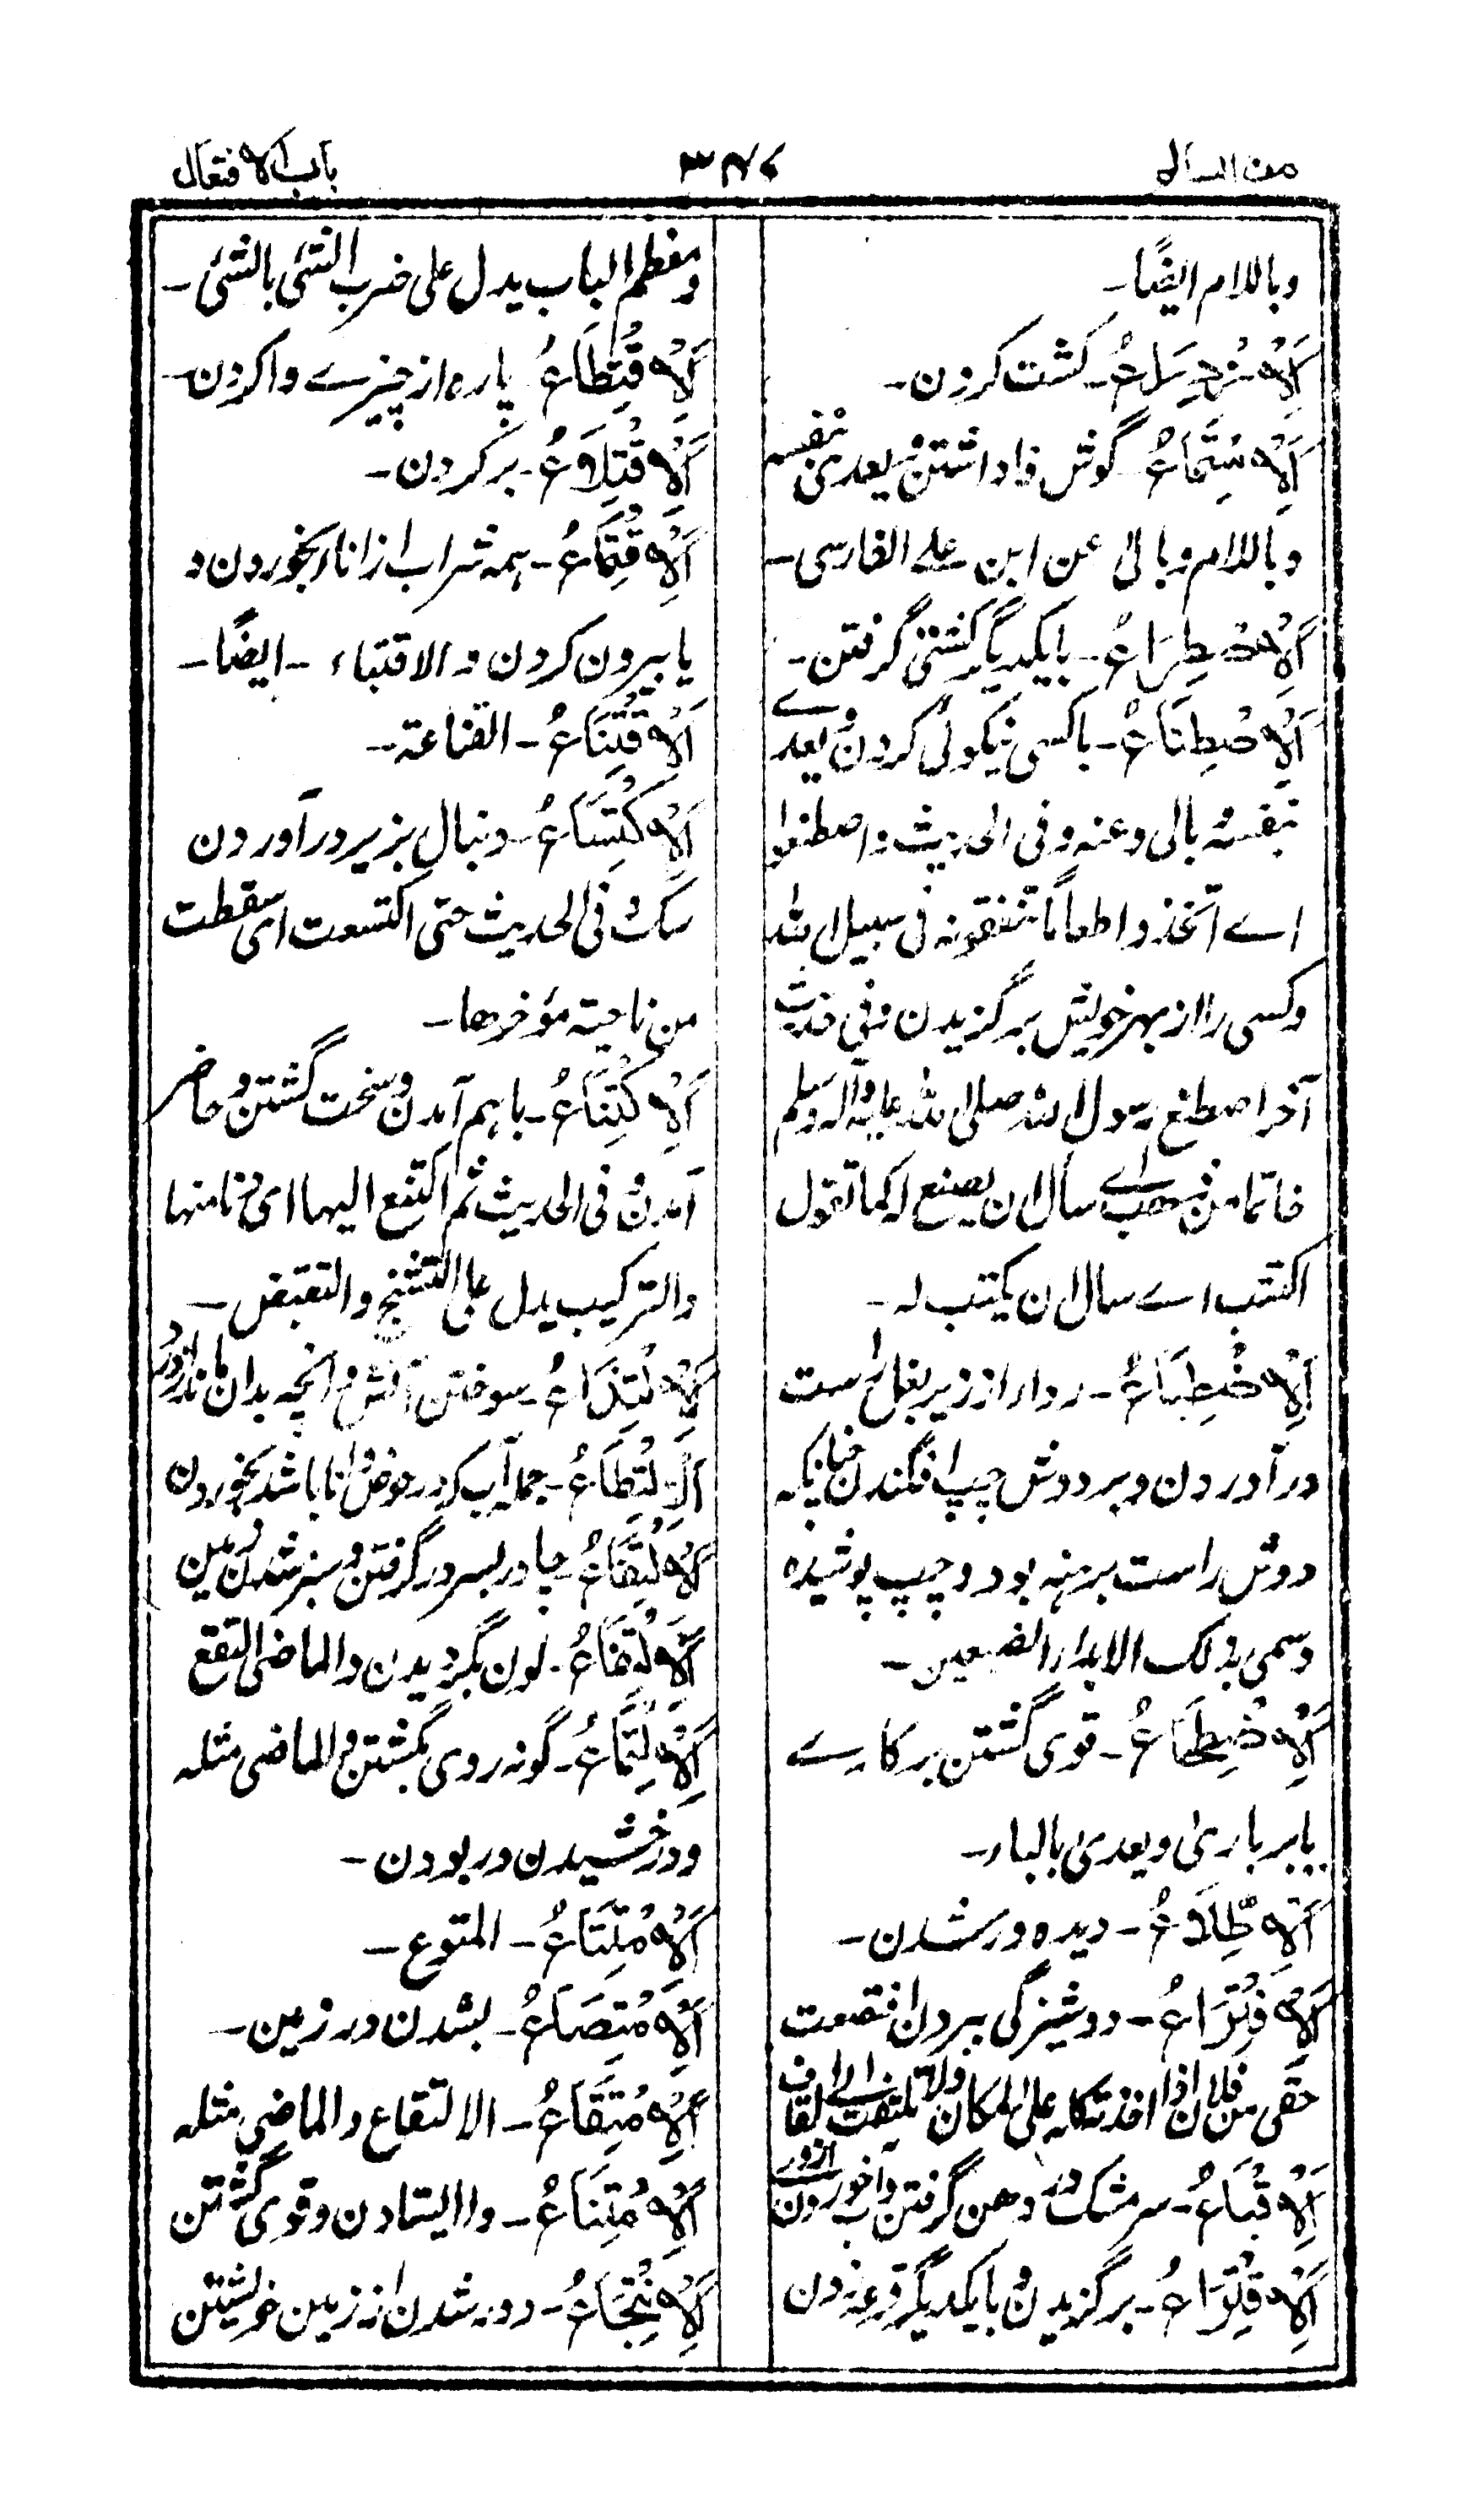 من السالم
۳۴۷
باب الافتعال
وباللام ایضًا۔
اَلْاِزْدِرَاعُ۔ کشت کردن۔
اَلْاِسْتِمَاعُ۔ گوش فاداشتن و یعدی بنفسه
وباللام وبالی عن ابن علی الفارسی۔
اَلْاِصْطِرَاعُ۔ بایکدیگر کشتی گرفتن۔
اَلْاِصْطِنَاعُ۔ باکسی نیکوئی کردن و یعدے
بنفسه بالی وعنه وفی الحدیث واصطنعوا
اے اتخذوا طعاماً تنفقونه فی سبیل الله
وکسی را از بهر خویش برگزیدن وفی حدیث
آخر اصطنع رسول الله صلی الله علیه وآله وسلم
خاتما من ذهب اے سأل ان یصنع له کما تقول
اکتتب اے سأل ان یکتب له۔
اَلْاِضْطِبَاعُ۔ ردا را از زیر بغل راست
درآوردن وبر دوش چپ افگندن چنانکه
دوش راست برهنه بود وچپ پوشیده
وسمی بذلک الابداء الضبعین۔
اَلْاِضْطِلَاعُ۔ قوی گشتن بر کارے
یا بر باری ویعدی بالباء۔
اَلْاِطِّلَاعُ۔ دیده ور شدن۔
اَلْاِفْتِرَاعُ۔ دوشیزگی ببردن افتصعت
حقی من فلان اذا اخذته کله علی المکان ولا تلتفت الی القاف
اَلْاِقْتِبَاعُ۔ سر مشک در دهن گرفتن وآب خوردن ازو
اَلْاِقْتِرَاعُ۔ برگزیدن و بایکدیگر قرعه زدن
ومعظم الباب یدل علی ضرب الشئ بالشئ۔
اَلْاِقْتِطَاعُ۔ پاره از چیزے واکردن۔
اَلْاِقْتِلَاعُ۔ برکردن۔
اَلْاِقْتِمَاعُ۔ همه شراب از اناء بخوردن و
یا بیرون کردن و الاقتباء ۔ ایضًا۔
اَلْاِقْتِنَاعُ۔ القناعة۔
اَلْاِکْتِسَاعُ۔ دنبال بزیر درآوردن
سگ و فی الحدیث حتی اکتسعت ای سقطت
من ناحیته مؤخرها۔
اَلْاِکْتِنَاعُ۔ باهم آمدن و سخت گشتن و حاضر
آمدن و فی الحدیث ثم اکتنع الیها ای دنا منها
والترکیب یدل علی التشنج والتقبض۔
اَلْاِلْتِذَاعُ۔ سوختن آتش و آنچه بدان ماند از درد
اَلْاِلْتِطَاعُ۔ جمله آب که در حوض و انا باشد بخوردن
اَلْاِلْتِفَاعُ۔ چادر بسر در گرفتن و سبز شدن زمین
اَلْاِلْتِقَاعُ۔ لون بگردیدن والماضی التقع
اَلْاِلْتِمَاعُ۔ گونه روی بگشتن والماضی مثله
ودرخشیدن وربودن۔
اَلْاِمْتِتَاعُ۔ المتوع۔
اَلْاِمْتِصَاعُ۔ بشدن در زمین۔
اَلْاِمْتِقَاعُ۔ الالتقاع والماضی مثله
اَلْاِمْتِنَاعُ۔ واایستادن وقوی گشتن
اَلْاِنْتِجَاعُ۔ دور شدن از زمین خویشتن